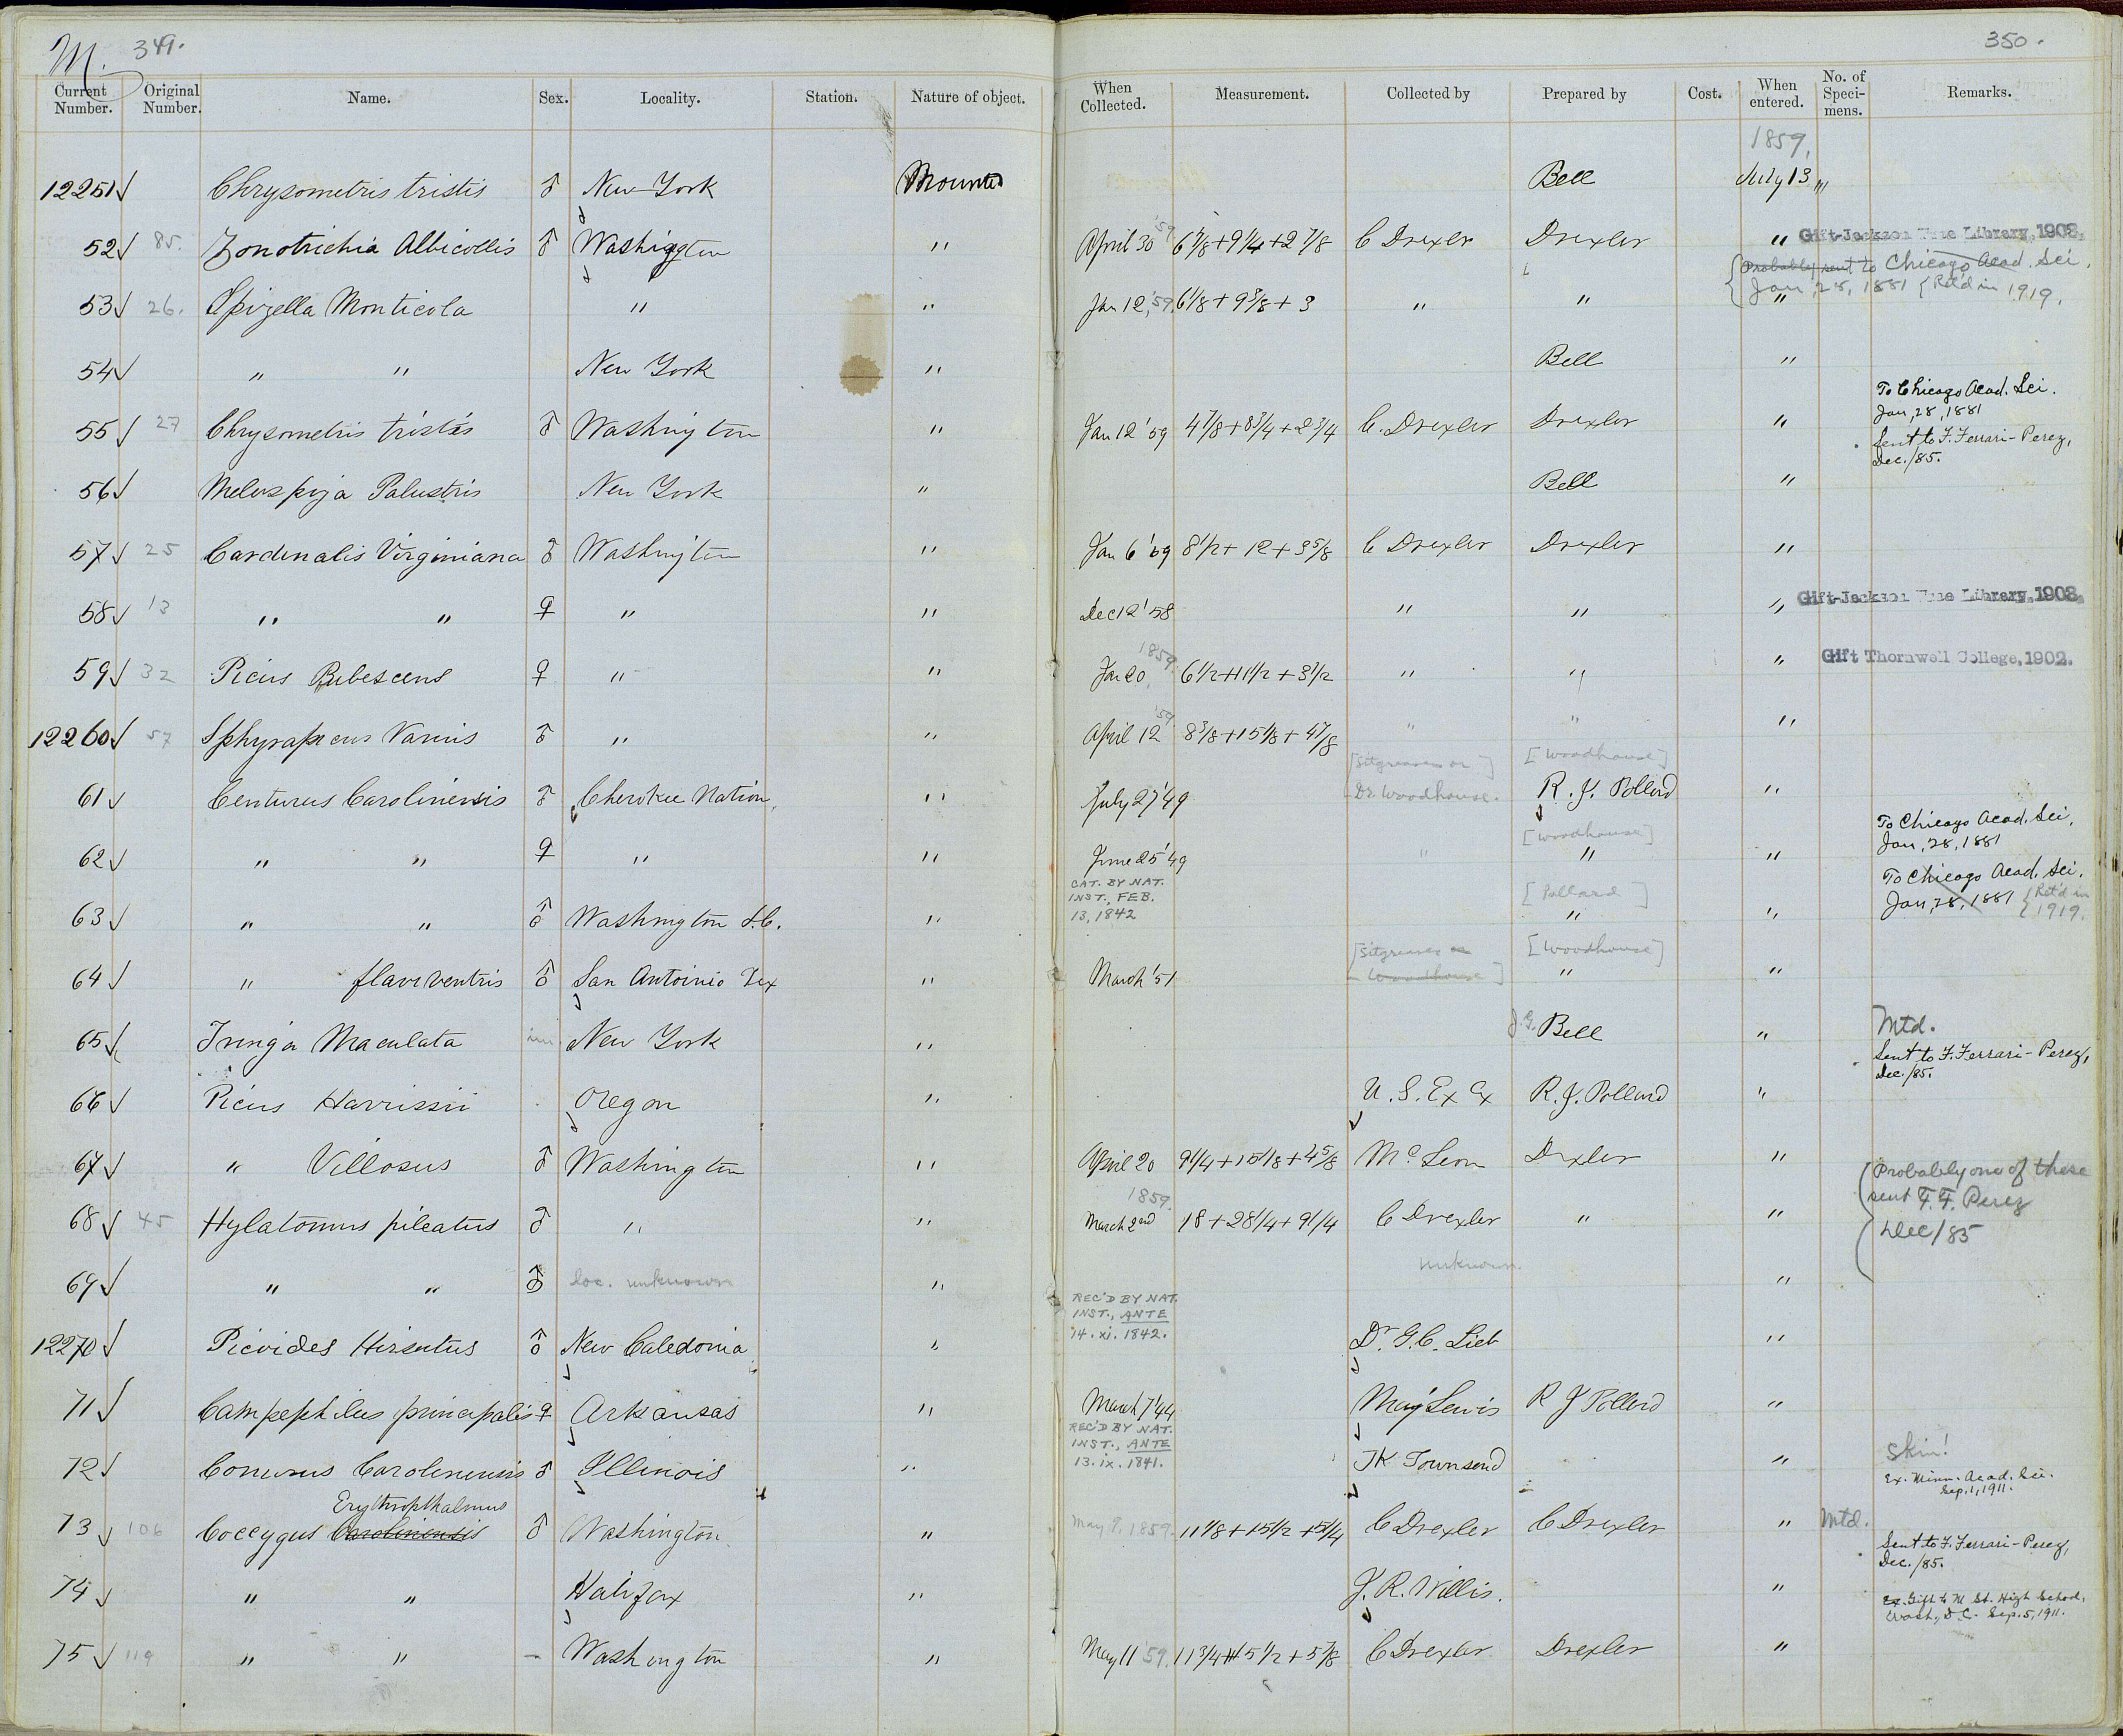 M. 349.
350.
Current Number. Original Number. Name. Sex. Locality. Station. Nature of object. When Collected. Measurement. Collected by Prepared by Cost. When entered. No. of Speci-mens. Remarks.
1859,
12251 Chrysometris tristis ♂ New York Mounted Bell July 13
52 85. Zonotrichia Albicollis ♂ Washington " April 30 '59 6 7/8 + 9 1/4 + 2 7/8 C Drexler Drexler " Gift-Jackson Library, 1908.
Probably sent to Chicago Acad. Sci.
Jan, 28, 1881 {Ret'd in 1919.
53 26. Spizella Monticola " " Jan 12, '59. 6 1/8 + 9 3/8 + 3 " " "
54 " " New York " Bell "
To Chicago Acad. Sci.
Jan, 28, 1881
55 27 Chrysometris tristis ♂ Washington " Jan 12 '59 4 7/8 + 8 3/4 + 2 3/4 C. Drexler Drexler "
Sent to F. Ferrari-Perez,
Dec./85.
56 Melospiza Palustris New York " Bell "
57 25 Cardenalis Virginiana ♂ Washington " Jan 6 '59 8 1/2 + 12 + 3 5/8 C Drexler Drexler "
58 13 " " ♀ " " Dec 12 '58 " " " Gift-Jackson Library, 1908.
59 32 Picus Pubescens ♀ " " Jan 20 1859. 6 1/2 + 11 1/2 + 3 1/2 " " " Gift Thornwell College, 1902.
12260 57 Sphyrapicus Varius ♂ " " April 12 '59. 8 3/8 + 15 1/8 + 4 7/8 " " "
[Sitgreaves or ] [Woodhouse]
61 Centurus Carolinensis ♂ Cherokee Nation, " July 27 '49 Dr. Woodhouse. R. J. Pollard "
[Woodhouse]
To Chicago Acad. Sci,
Jan, 28, 1881
62 " " ♀ " " June 25 '49 " " "
CAT. BY NAT. INST., FEB. 13, 1842
[Pollard]
To Chicago Acad. Sci.
Jan, 28, 1881 {Ret'd in 1919.
63 " " ♂ Washington D.C. " " "
[Sitgreaves or Woodhouse] [Woodhouse]
64 " flaviventris ♂ San Antoinio Tex " March '51 " "
65 Tringa Maculata im New York " J. G. Bell " Mtd.
Sent to F. Ferrari-Perez,
Dec./85.
66 Picus Harrisii Oregon " U. S. Ex Ex R. J. Pollard "
67 " Villosus ♂ Washington " April 20 9 1/4 + 15 1/8 + 4 5/8 Drexler "
Probably one of these
sent F. F. Perez
Dec/85
68 45 Hylatomus pileatus ♂ " " 1859. March 2nd 18 + 28 1/4 + 9 1/4 C Drexler " "
69 " " ♂ loc. unknown " unknown. "
REC'D BY NAT. INST., ANTE 14. xi. 1842.
12270 Picoides Hirsutus ♂ New Caledonia " Dr. G. C. Lieb "
71 Campephilus principalis ♀ Arkansas " March 7 '44 May Lewis R J Pollard "
REC'D BY NAT. INST., ANTE 13. ix. 1841.
72 Conurus Carolinensis ♂ Illinois " JK Townsend " Skin!
Ex. Minn. Acad. Sci.
Sep. 1, 1911.
Erythropthalmus
73 106 Coccygus Carolinensis ♂ Washington " May 9, 1859. 11 1/8 + 15 1/2 + 5 1/4 C Drexler C Drexler " Mtd.
Sent to F. Ferrari-Perez,
Dec./85.
74 " " Halifax " J. R. Willis. "
Ex. Gift to M St. High School,
Wash., D.C. Sep. 5, 1911.
75 119 " " – Washington " May 11 '59. 11 3/4 + 15 1/2 + 5 7/8 C Drexler Drexler "